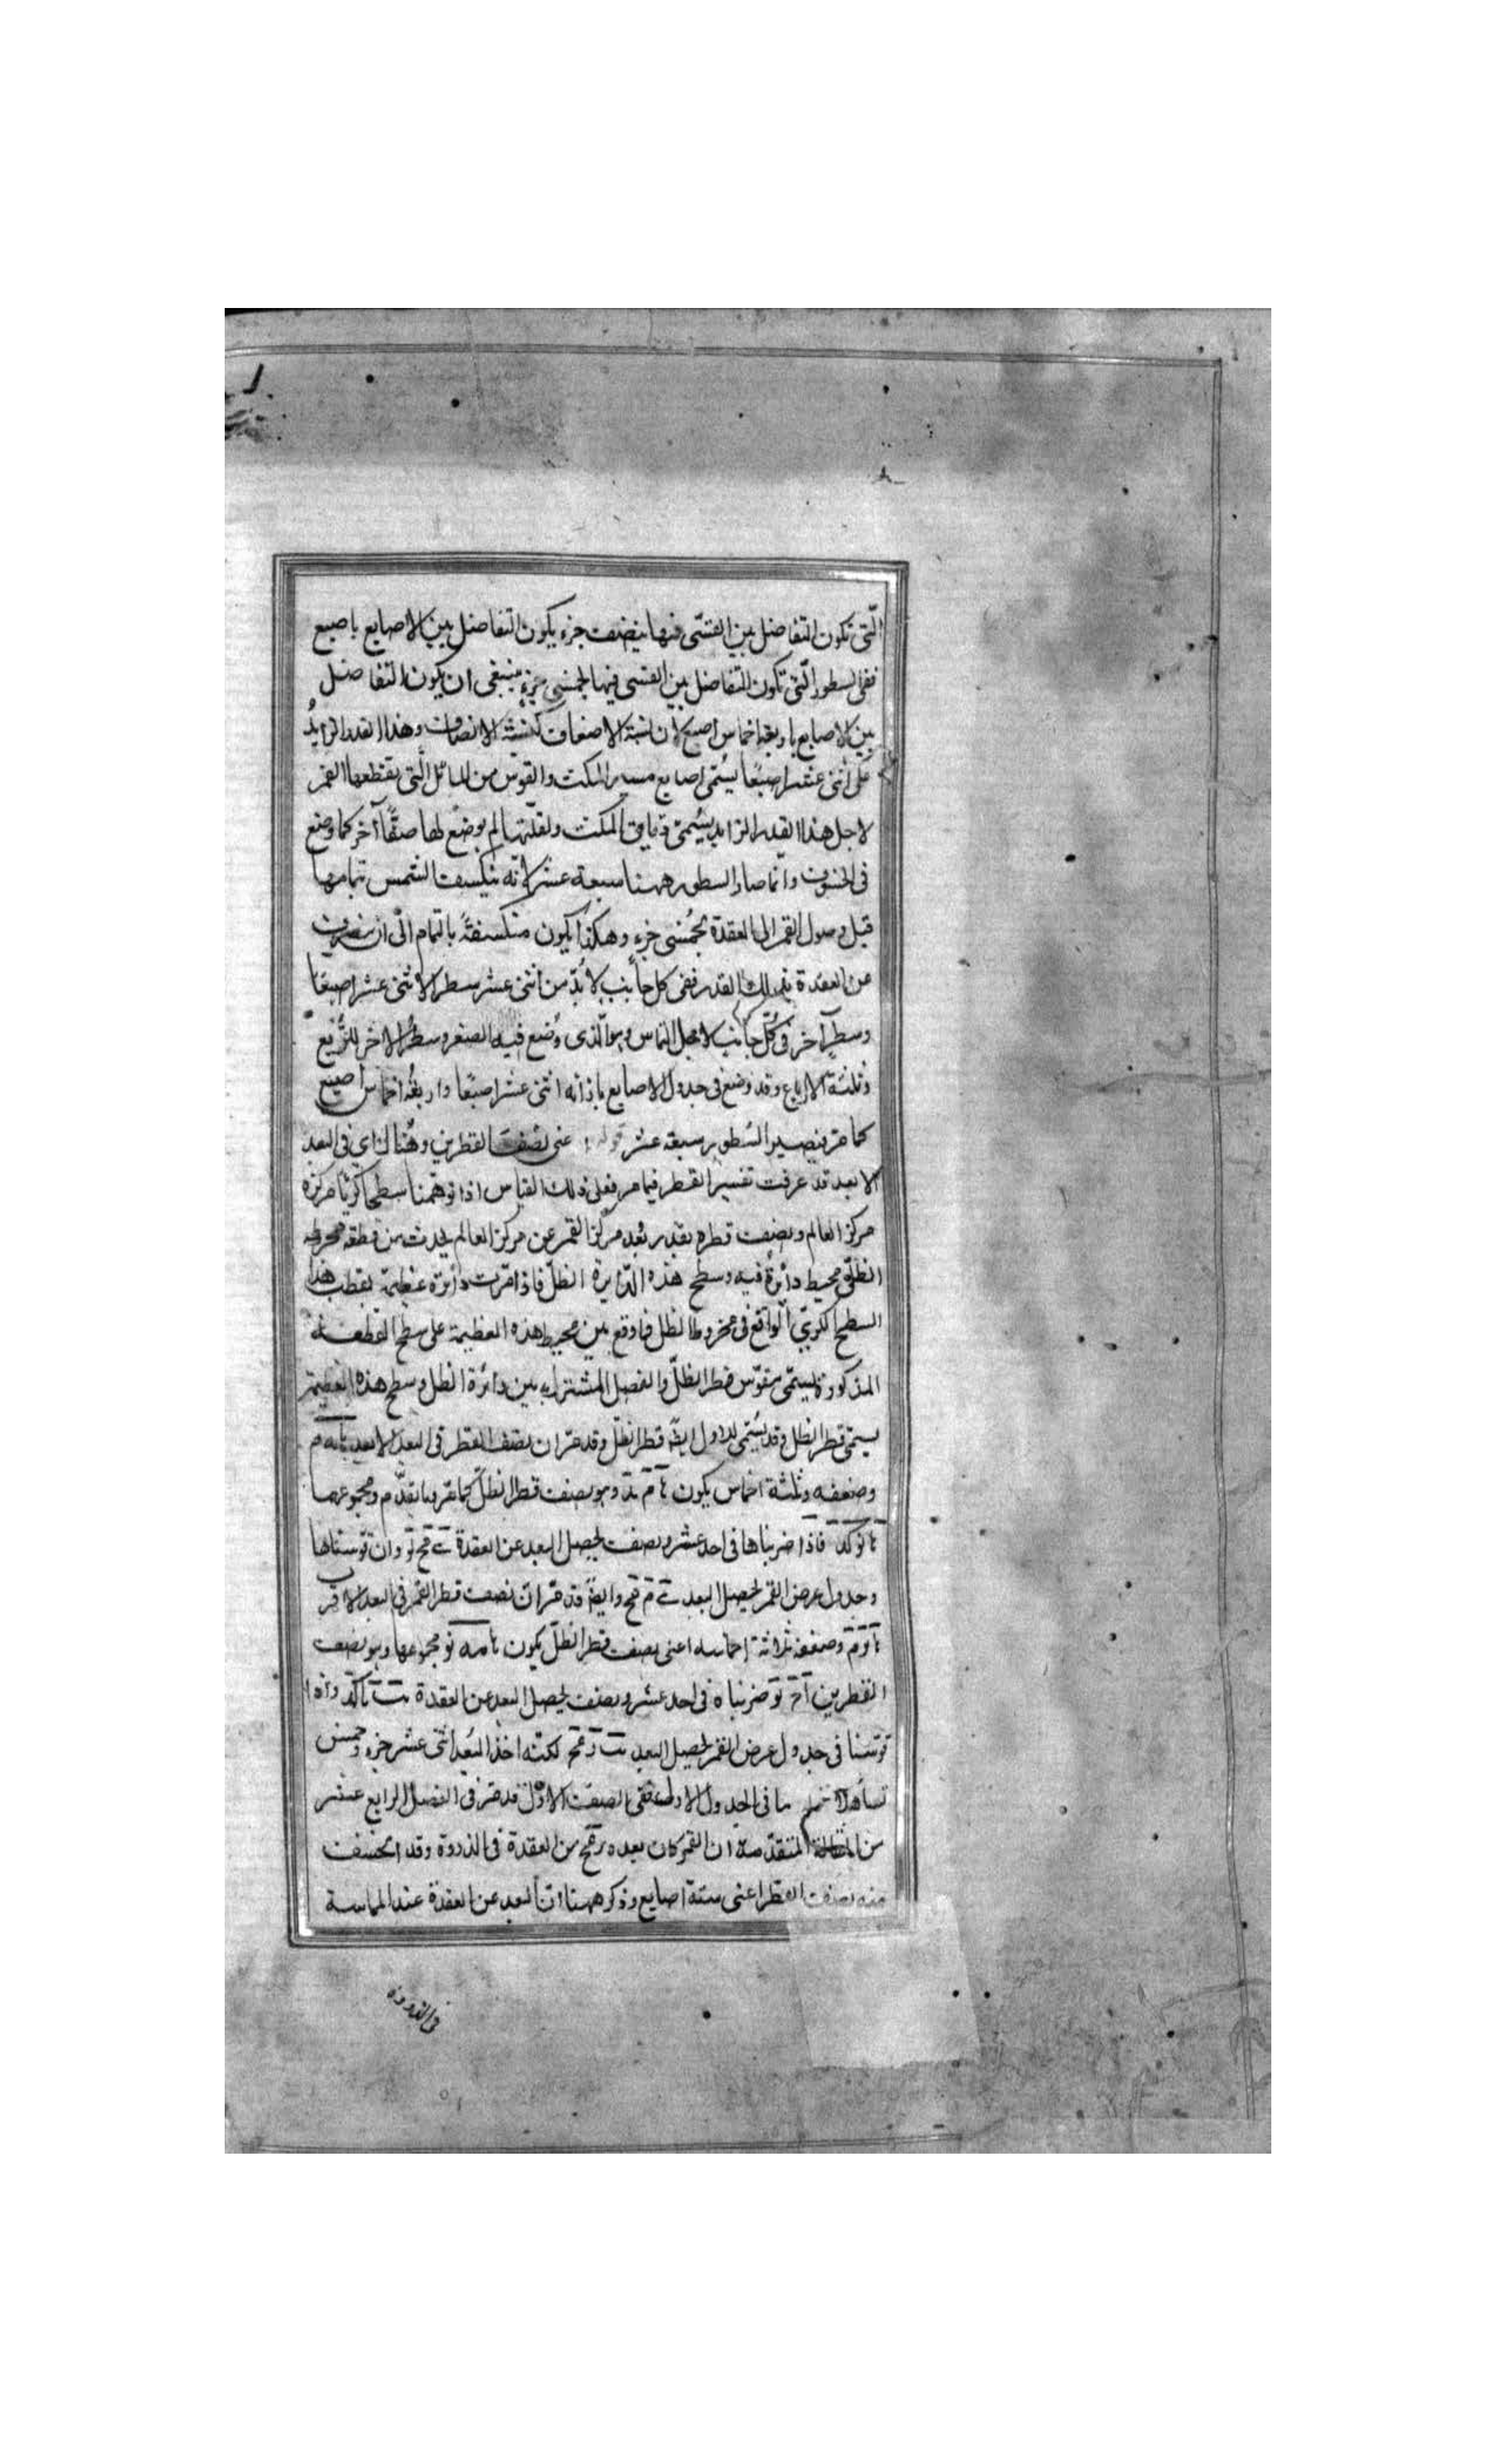 الّتى تكون التفاضل بين القسّى فيها بنصف جزء يكون التفاضل بين الاصابع باصبع
ففى السطور الّتى تكون التفاضل بين القسى فيها بخمسى جزء ينبغى ان يكون التفاضل
بين الاصابع باربعة اخماس اصبع لان نسبة الاضعاف كنسبة الانصاف وهذا القدر الزايد
على اثنى عشر اصبعًا يسُمّى اصابع مسير المكث والقوس من المائل الّتى يقطعها القمر
لاجل هذا القدر الزايد يسُمّى دقايق المكث ولقلّتها لم يوضع لها صفًّا آخر كما وضع
فى الخسوف وانّما صار السطور ههنا سبعة عشر لانّه ينكسف الشمس بتمامها
قبل وصول القمر الى العقدة بخُمسى جزء وهكذا يكون منكسفةً بالتمام الى ان ينصرف
عن العقدة بذلك القدر ففى كل جانب لا بُدّ من اثنى عشر سطرا لاثنى عشر اصبعًا
وسطر آخر فى كُلّ جانب لاجل التماس وهو الّذى وُضع فيه الصفر وسطر الاخر للرُّبع
وثلثة الارباع وقد وضع فى جدول الاصابع بازائه اثنى عشر اصبعًا واربعة اخماس اصبع
كما مرّ فيصير السُطور سبعة عشر قوله عنى نصف القطرين وهُناك اى فى البعد
الابعد قد عرفت تفسير القطر فيما مر فعلى ذلك القياس اذا توهّمنا سطحا كريّا مركزه
مركز العالم وبنصف قطره بقدر بُعد مركز القمر عن مركز العالم يحدث من قطعه مخروط
الظلّ محيط دائرة فيه وسطح هذه الدّايرة الظلّ فاذا مرّت دائرة عظيمة بقطب هذا
السطح الكُرىّ الواقع فى مخروط الظل فما وقع بين محيط هذه العظيمة على سطح القطعة
المذكورة يسمّى مقوّس قطر الظلّ والفصل المشترك بين دائرة الظل وسطح هذه العظيمة
يسمّى قطر الظل وقد يسُمّى الاول ايضًا قطر الظلّ وقد مرّ ان نصف القطر فى البعد الابعد
وضعفه وثلثة اخماس يكون وهو نصف قطر الظلّ كما مرّ فيما تقدّم ومجموعهما
فاذا ضربناها فى احد عشر ونصف يحصل البعد عن العقدة وان قوسناها
وجدول عرض القمر يحصل البعد وايضًا قد مرّ ان نصف قطر القمر فى البعد الاقرب
وضعفه ثلاثة اخماسه اعنى نصف قطر الظلّ يكون مجموعها وهو نصف
القطرين ضربناه فى احد عشر ونصف يحصل البعد عن العقدة واذا
قوّسنا فى جدول عرض القمر يحصل البعد لكنّه اخذ البُعد اثنى عشر جزء وخمس
تساهلا ما فى الجدول الاول ففى الصف الاوّل قد مرّ فى الفصل الرابع عشر
من المقالة المتقدّمة ان القمر كان بعده من العقدة فى الذروة وقد انخسف
منه نصف القطر اعنى ستة اصابع وذكر ههنا انّ البعد عن العقدة عند المماسة
فى الذروة